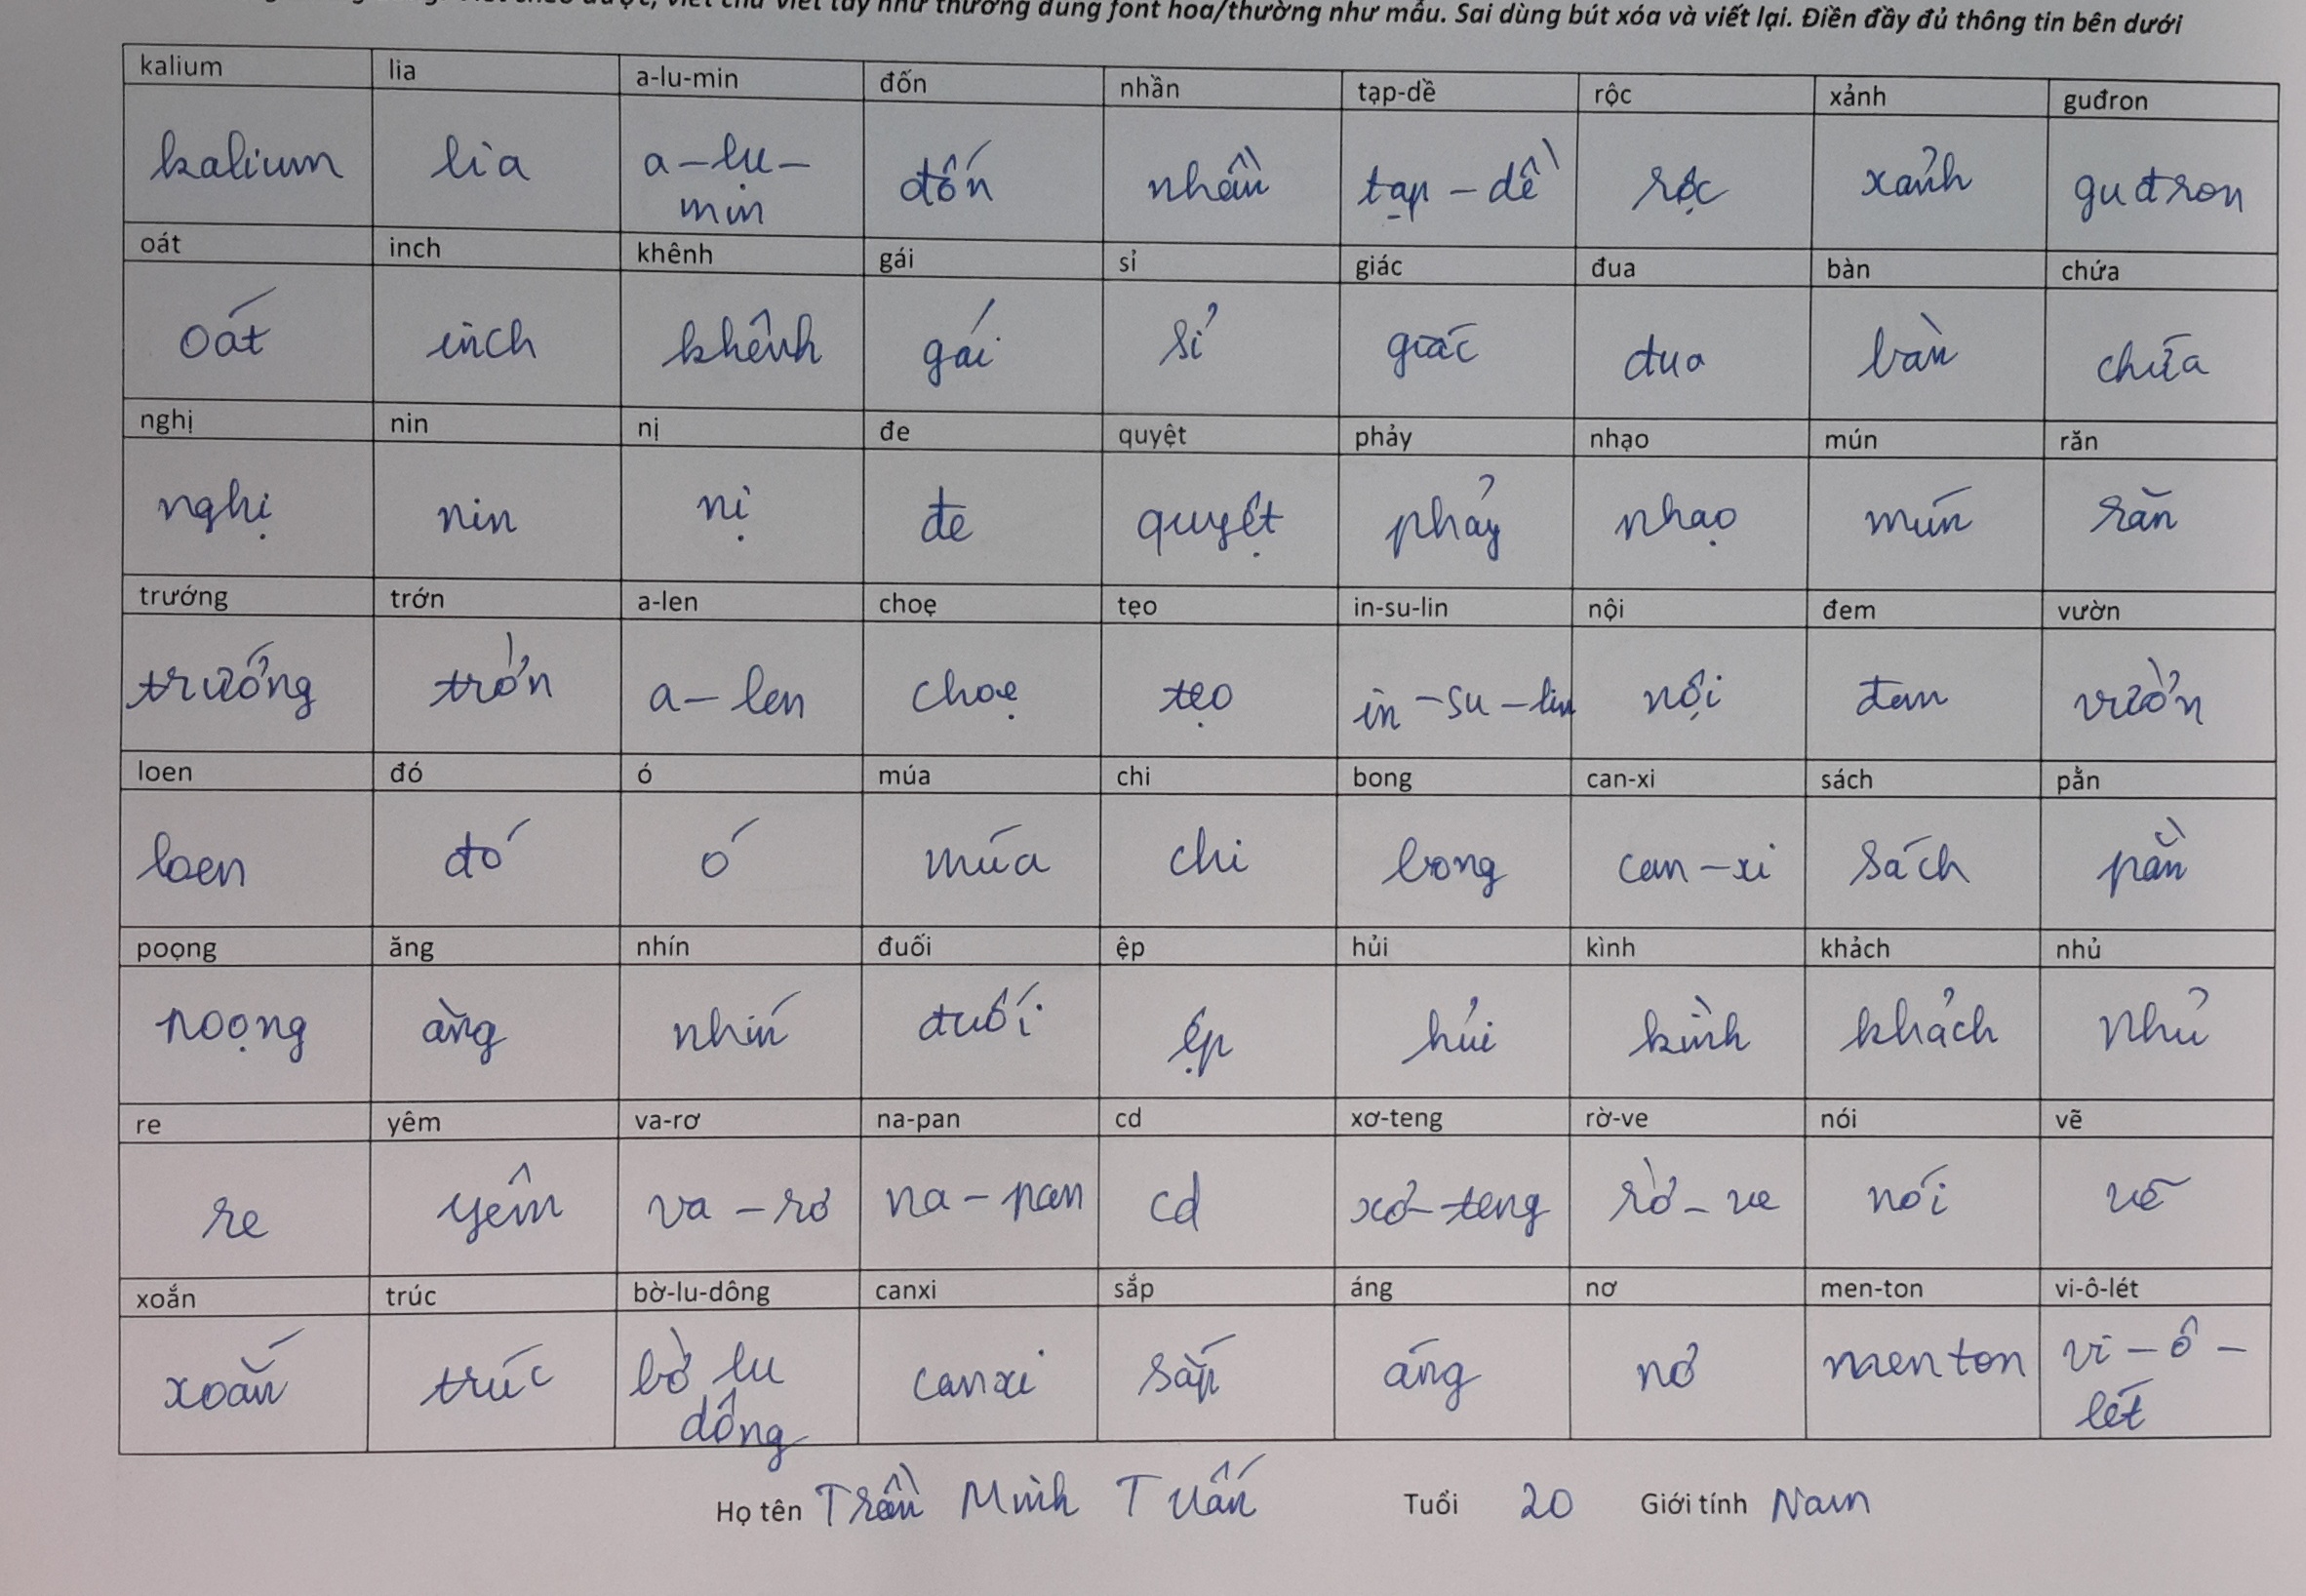 viết chữ viết tay như thường dùng font hoa/thường như mẫu. Sai dùng bút xóa và viết lại. Điền đầy đủ thông tin bên dưới
kalium lia a-lu-min đốn nhần tạp-dề rộc xảnh guđron
kalium lia a-lu- đốn nhần tạp-dề rộc xảnh guđron
min
oát inch khênh gái sỉ giác đua bàn chứa
oát inch khênh gái sỉ giác đua bàn chứa
nghị nin nị đe quyệt phảy nhạo mún răn
nghị nin nị đe quyệt phảy nhạo mún răn
trướng trớn a-len choẹ tẹo in-su-lin nội đem vườn
trướng trờn a-len choẹ tẹo in-su-lin nội đem vườn
loen đó ó múa chi bong can-xi sách pằn
loen đó ó múa chi bong can-xi sách pằn
poọng ăng nhín đuối ệp hủi kình khảch nhủ
poọng ằng nhín đuối ệp hủi kình khảch nhủ
re yêm va-rơ na-pan cd xơ-teng rờ-ve nói vẽ
re yêm va-rơ na-pan cd xơ-teng rờ-ve nói vẽ
xoắn trúc bờ-lu-dông canxi sắp áng nơ men-ton vi-ô-lét
xoắn trúc bờ lu canxi sắp áng nơ men ton vi-ô-
dông lét
Họ tên Trần Minh Tuấn Tuổi 20 Giới tính Nam